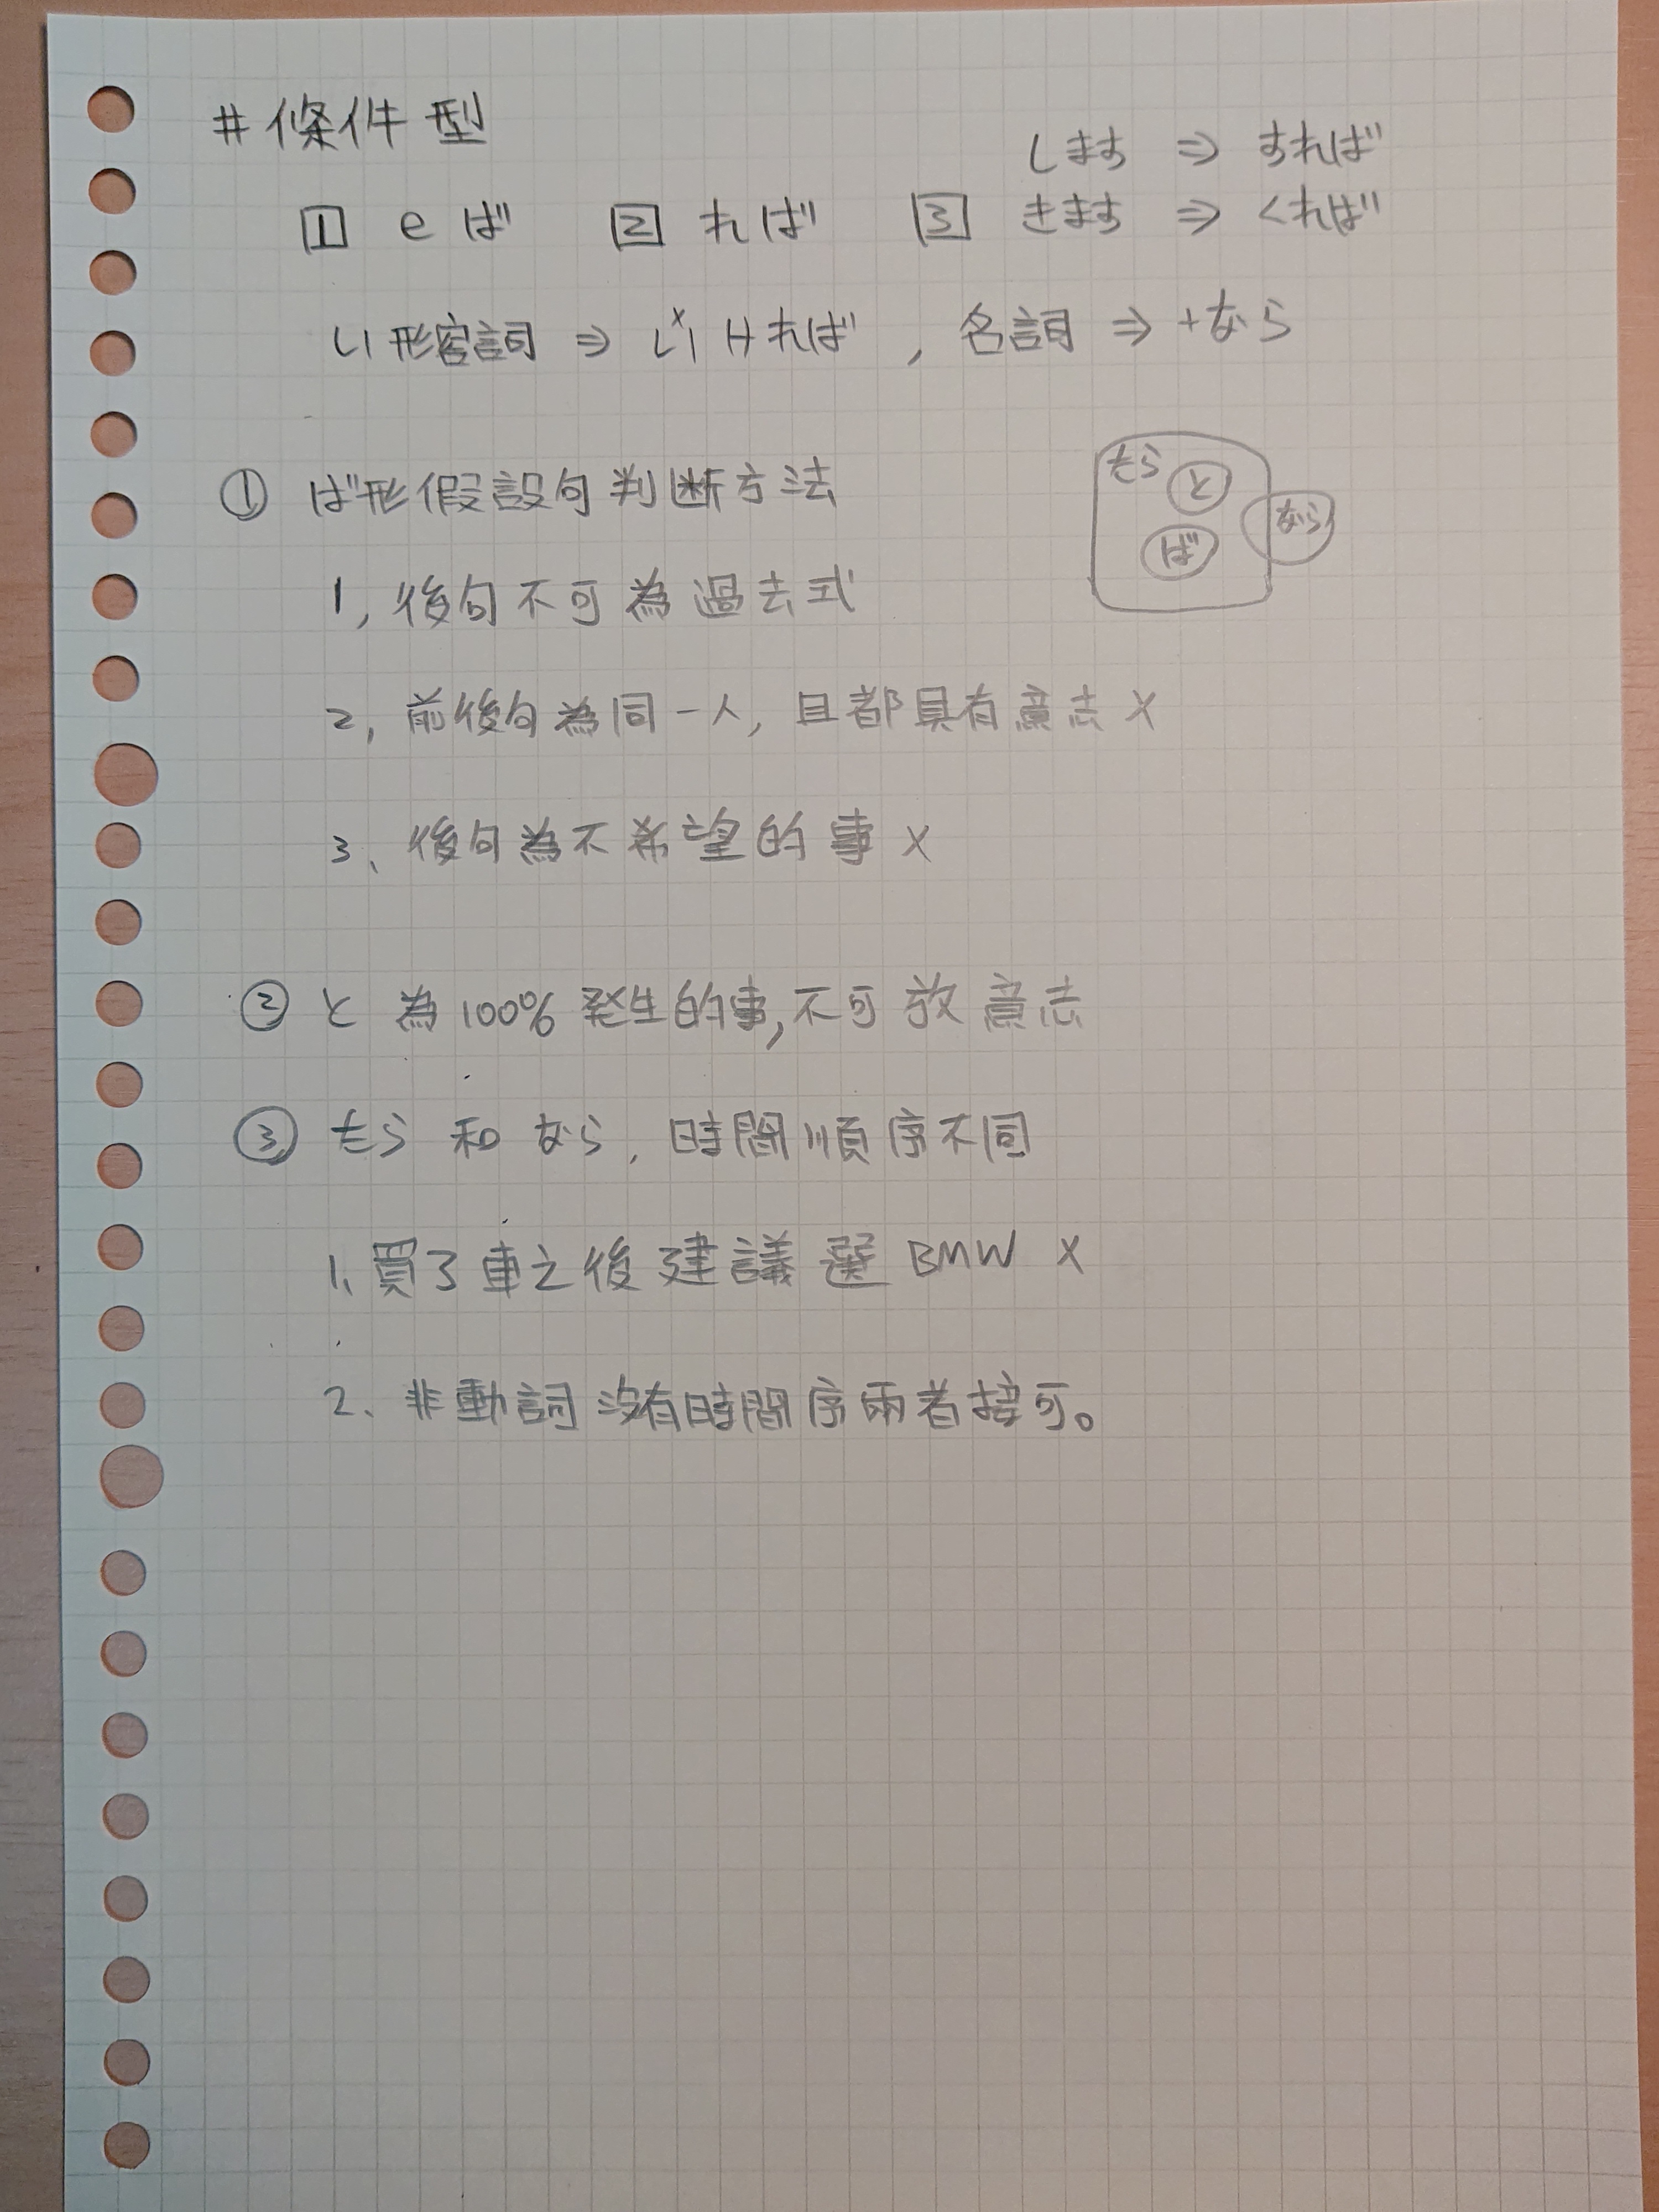 # 條件型
します ⇒ すれば
1 eば 2 れば 3 きます ⇒ くれば
い形容詞 ⇒ い ければ , 名詞 ⇒ +なら
たら と ば なら
① ば形假設句判斷方法
1, 後句不可為過去式
2, 前後句為同一人, 且都具有意志 X
3、後句為不希望的事 X
② と 為100%發生的事,不可放意志
③ たら 和 なら, 時間順序不同
1、買了車之後建議選 BMW X
2、非動詞沒有時間序兩者接可。